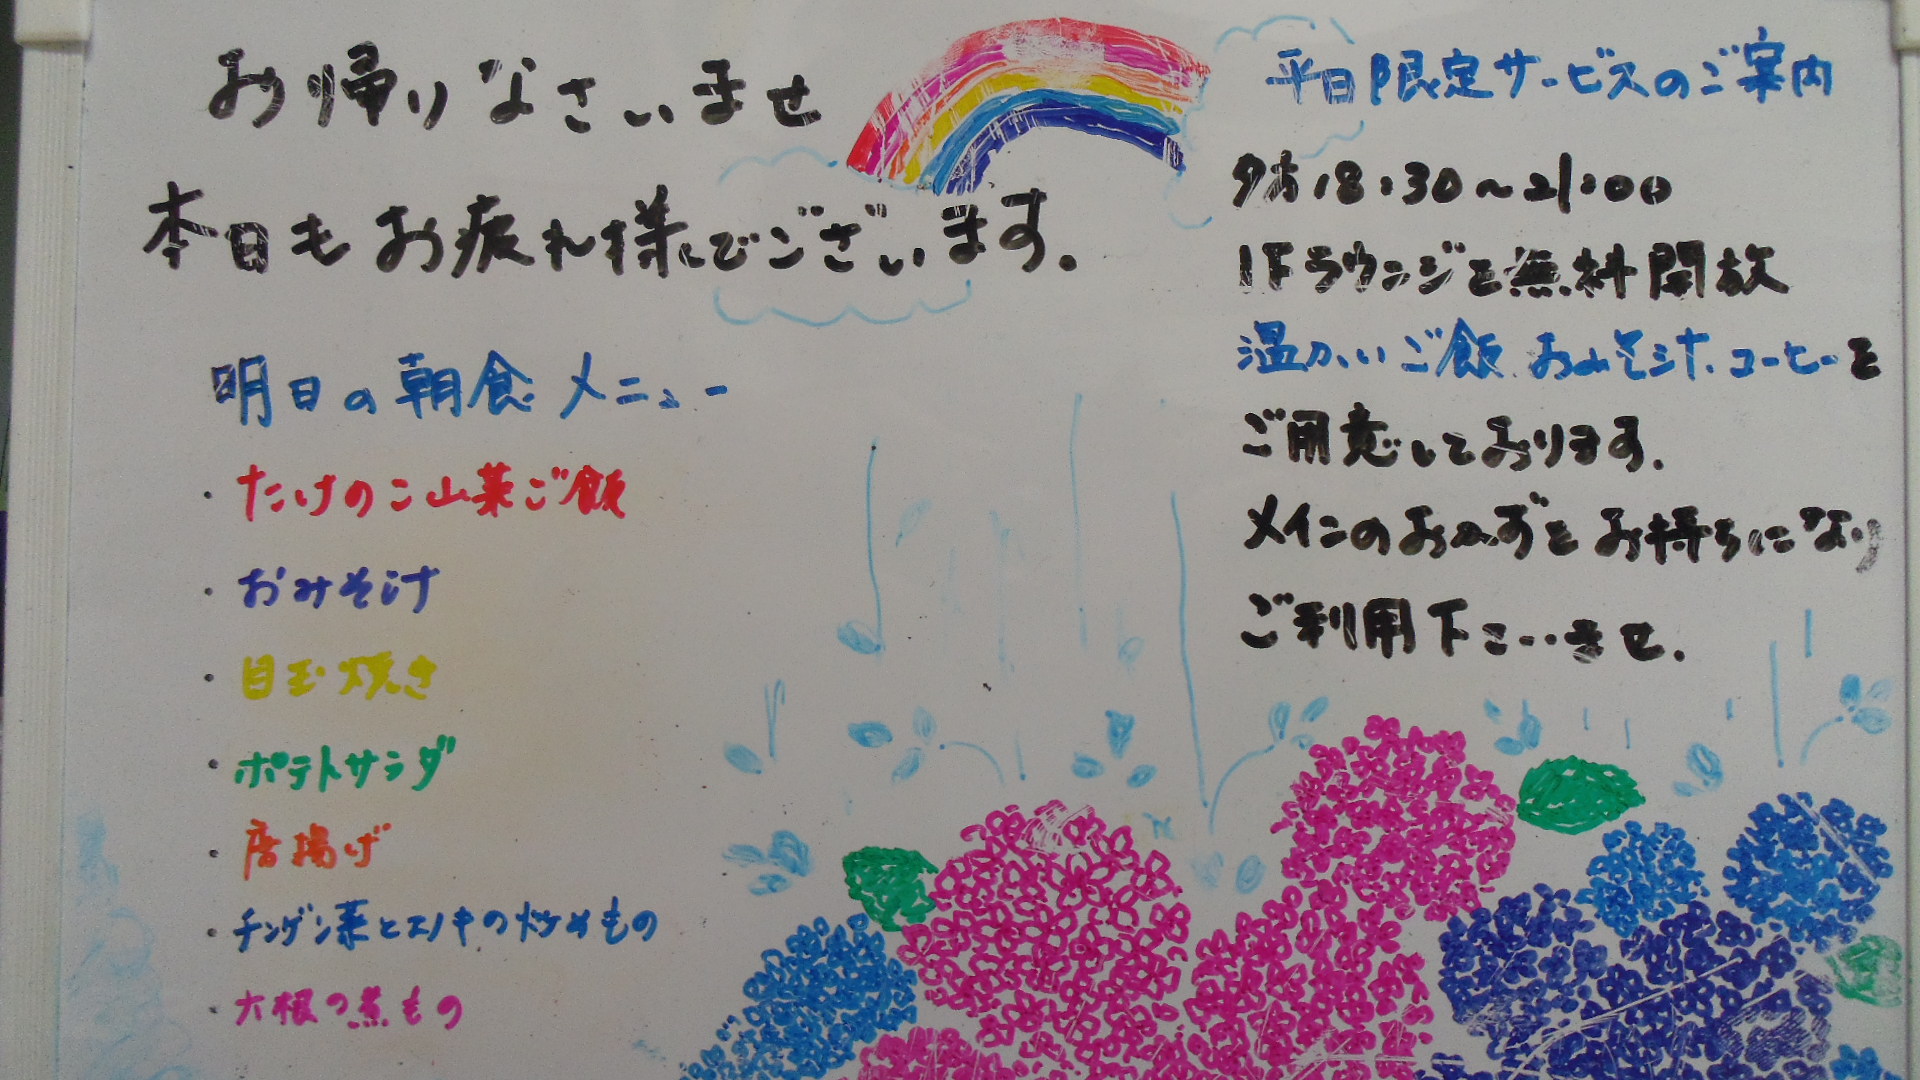 お帰りなさいませ
本日もお疲れ様でございます。
明日の朝食メニュー
・たけのこ山菜ご飯
・おみそ汁
・目玉焼き
・ポテトサラダ
・唐揚げ
・チンゲン菜とエノキの炒めもの
・大根の煮もの
平日限定サービスのご案内
夕方18:30～21:00
1Fラウンジを無料開放
温かいご飯、おみそ汁、コーヒーを
ご用意しております。
メインのおかずをお持ちになり
ご利用下さいませ。